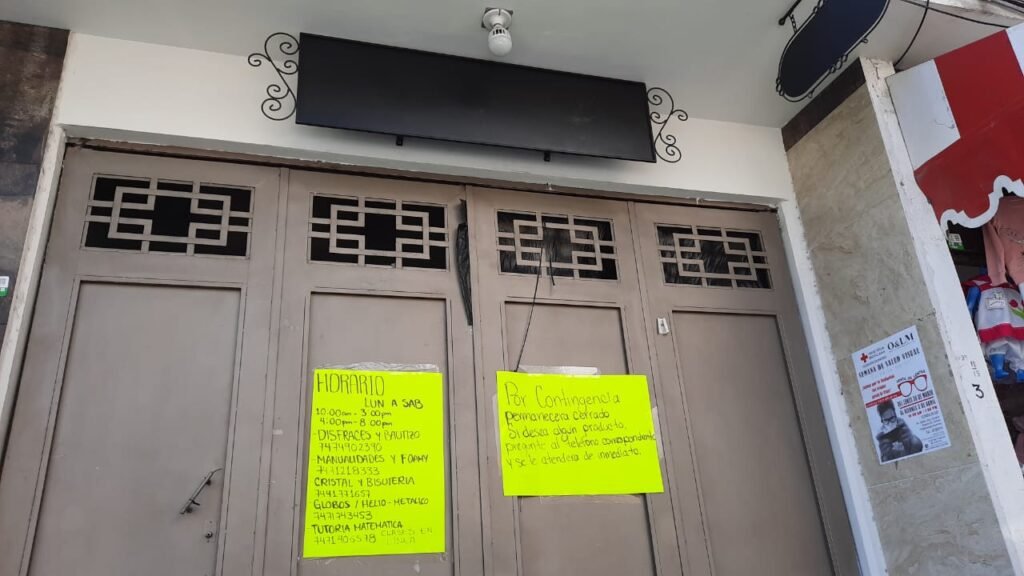 HORARIO
LUN A SAB
10:00am - 3:00pm
4:00pm - 8:00pm
-DISFRACES Y BAUTIZO
7474902390
-MANUALIDADES Y FOAMY
7471218333
-CRISTAL Y BISUTERIA
7441771657
-GLOBOS / HELIO - METALICO
7471743453
-TUTORIA MATEMATICA
7471406578 CLASES EN LINEA
Por Contingencia
permanecera cerrado
Si desea algun producto,
pregunte al telefono correspondiente
y se le atendera de inmediato.
O&LM
SEMANA DE SALUD VISUAL
3